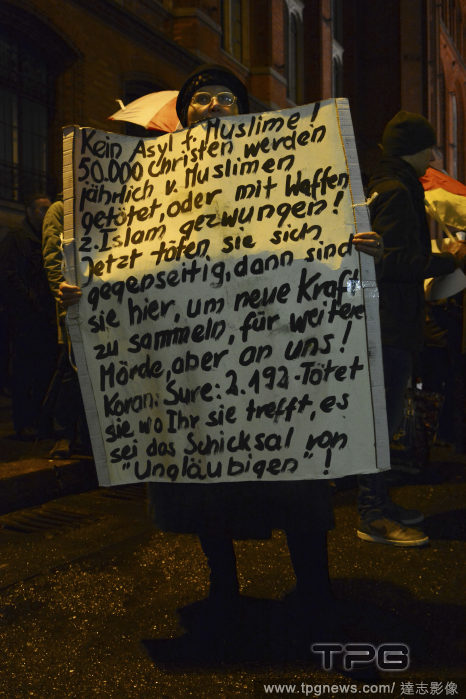 Kein Asyl f. Muslime!
50.000 Christen werden
jährlich v. Muslimen
getötet, oder mit Waffen
z. Islam gezwungen!
Jetzt töten sie sich
gegenseitig, dann sind
sie hier, um neue Kraft
zu sammeln, für weitere
Mörde, aber an uns!
Koran: Sure: 2.192-Tötet
sie wo Ihr sie trefft, es
sei das Schicksal von
"Ungläubigen"!
TPG
www.tpgnews.com/ 達志影像